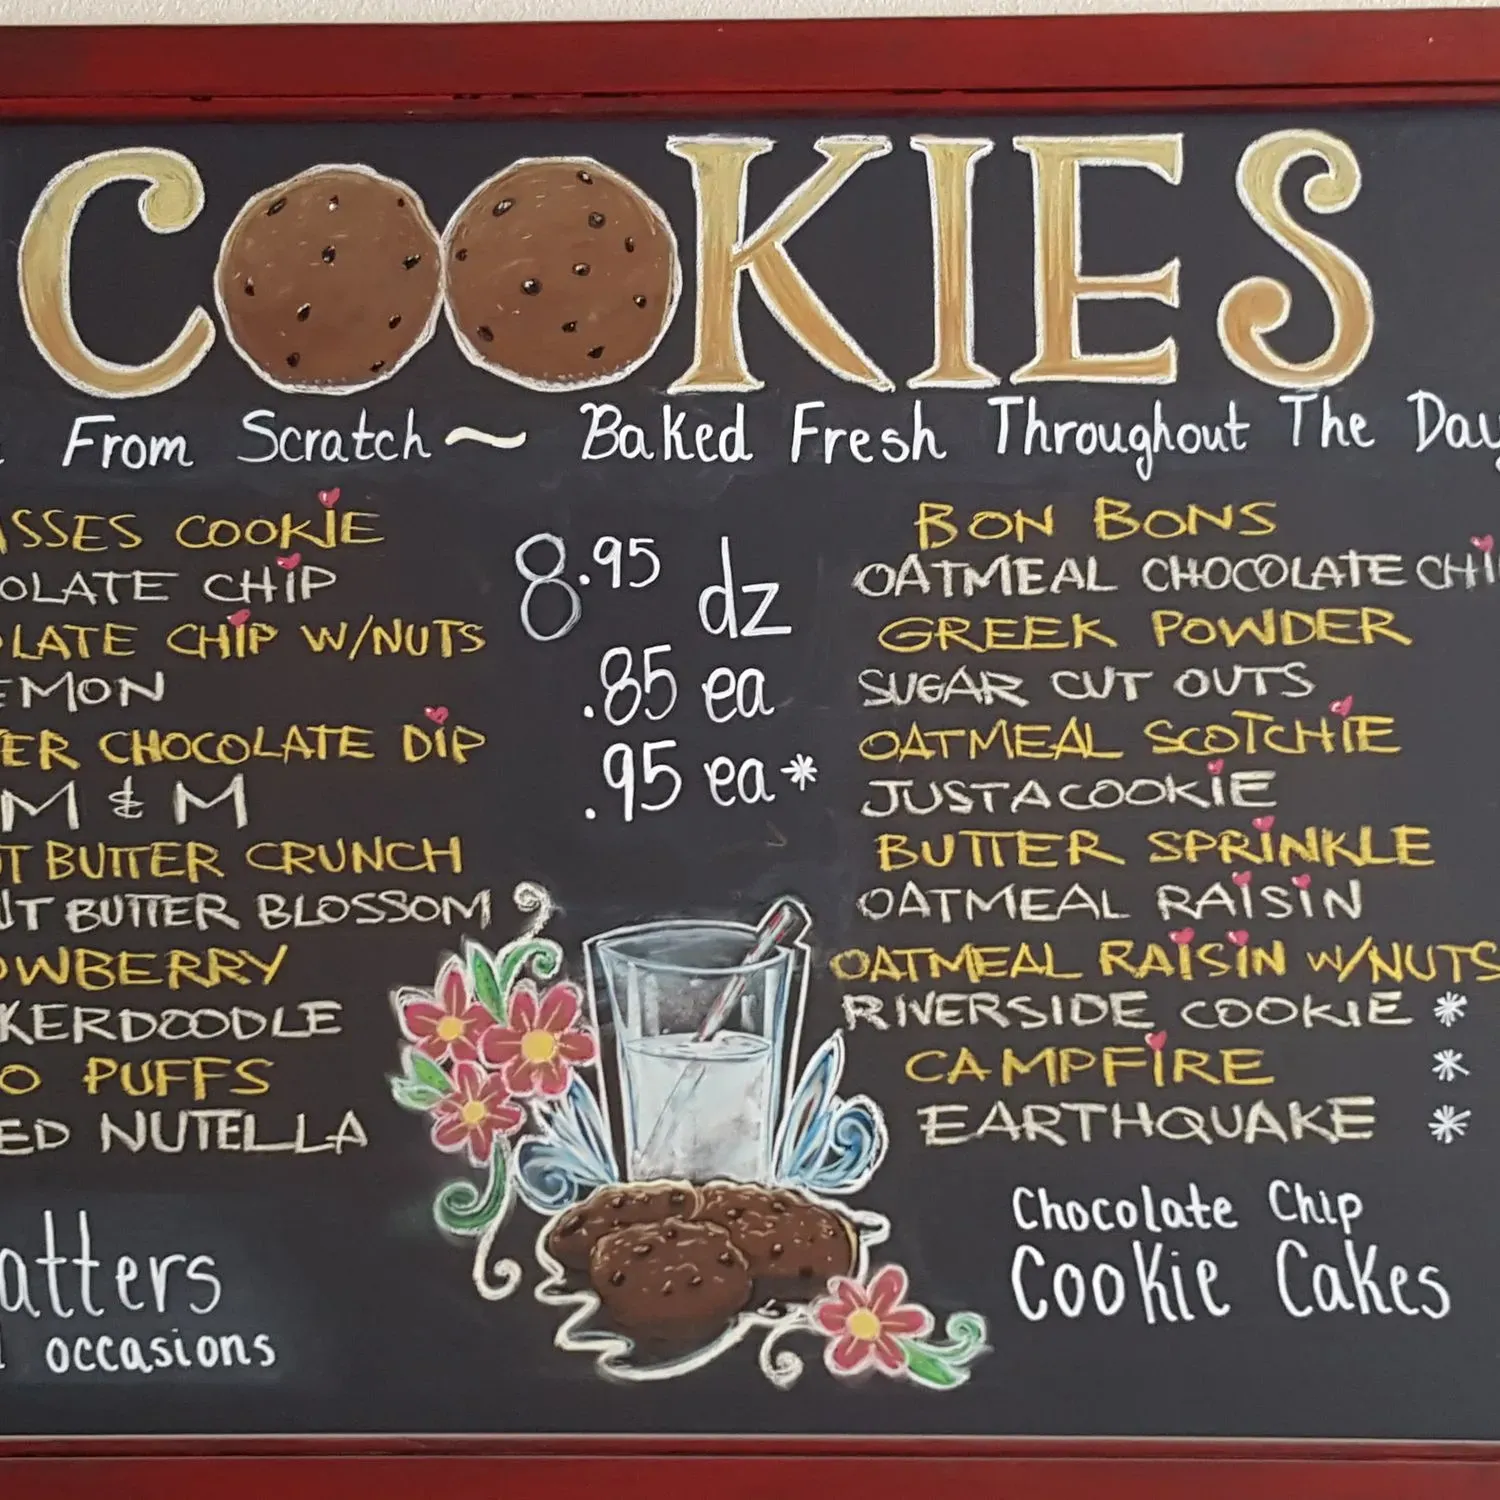 COOKIES
From Scratch ~ Baked Fresh Throughout The Day
COOKIE
CHIP
CHIP W/NUTS
CHOCOLATE DIP
M & M
BUTTER CRUNCH
BUTTER BLOSSOM
PUFFS
NUTELLA
8.95 dz
.85 ea
.95 ea*
BON BONS
OATMEAL CHOCOLATE
GREEK POWDER
SUGAR CUT OUTS
OATMEAL SCOTCHIE
JUSTACOOKIE
BUTTER SPRINKLE
OATMEAL RAISIN
OATMEAL RAISIN W/NUTS
RIVERSIDE COOKIE *
CAMPFIRE *
EARTHQUAKE *
occasions
Chocolate Chip
Cookie Cakes